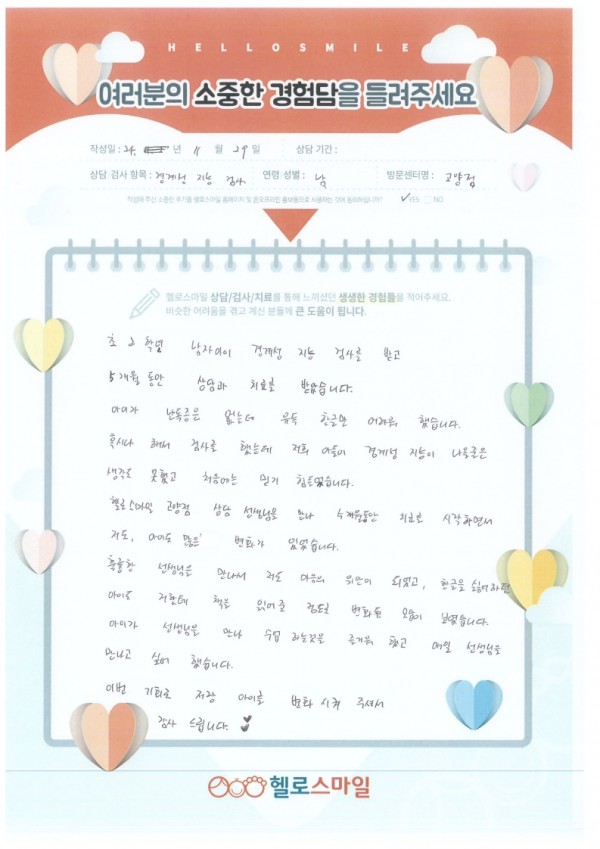 HELLOSMILE
여러분의 소중한 경험담을 들려주세요
작성일 : 24. 년 11 월 29 일 상담 기간 :
상담·검사 항목 : 경계성 지능 검사 연령·성별 : 남 방문센터명 : 고양점
작성해 주신 소중한 후기를 헬로스마일 홈페이지 및 온오프라인 홍보물으로 사용하는 것에 동의하십니까? ✓YES □NO
헬로스마일 상담/검사/치료를 통해 느끼셨던 생생한 경험들을 적어주세요.
비슷한 어려움을 겪고 계신 분들께 큰 도움이 됩니다.
초 2 학년 남자아이 경계성 지능 검사를 받고
5개월 동안 상담과 치료를 받았습니다.
아이가 난독증은 없는데 유독 한글만 어려워 했습니다.
혹시나 해서 검사를 했는데 저희 아들이 경계성 지능이 나올줄은
생각도 못했고 처음에는 믿기 힘들었습니다.
헬로스마일 고양점 상담 선생님을 만나 수개월동안 치료를 시작하면서
저도, 아이도 많은 변화가 있었습니다.
훌륭한 선생님을 만나서 저도 마음의 위안이 되었고, 한글을 싫어하던
아이도 저한테 책을 읽어줄 정도로 변화된 모습이 보였습니다.
아이가 선생님을 만나 수업 하는것을 즐거워 했고 매일 선생님을
만나고 싶어 했습니다.
이번 기회로 저랑 아이를 변화 시켜 주셔서
감사 드립니다.
헬로스마일